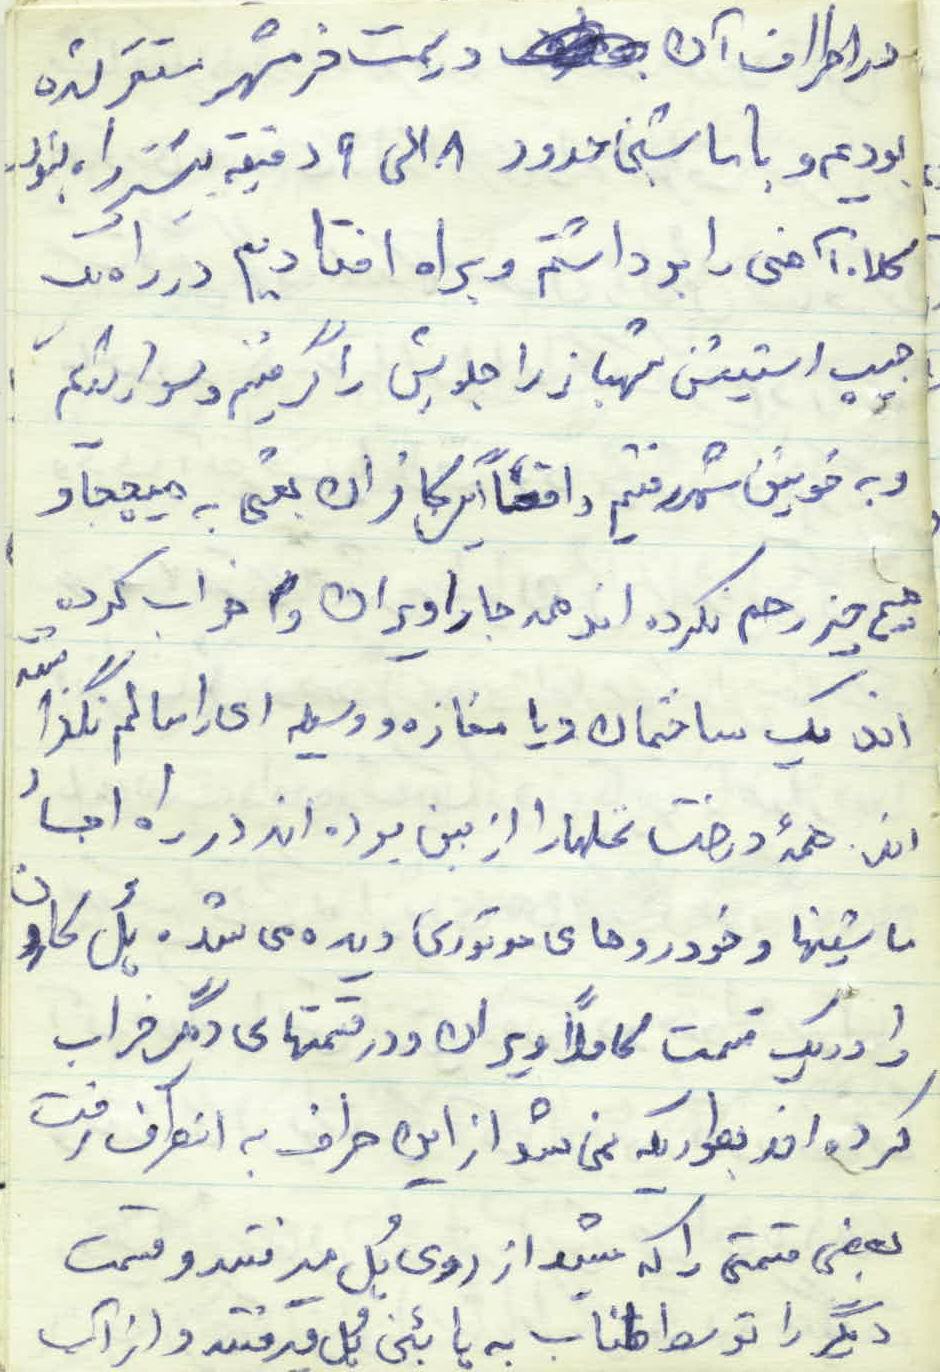 در اطراف آن در سمت خرمشهر مستقر شده
بودیم و با ماشین حدود ۸ الی ۹ دقیقه بیشتر راه نبود
کلاه آهنی را برداشتم و براه افتادیم در راه یک
جیپ استیشن شهباز را جلویش را گرفتیم و سوار شدیم
و به خونین شهر رفتیم واقعاً این کافران بعثی به هیچ جا و
هیچ چیز رحم نکرده اند همه جا را ویران و خراب کرده
اند یک ساختمان و یا مغازه و وسیله ای را سالم نگذاشته
اند. همهٔ درخت نخلها را از بین برده اند در راه اجساد
ماشینها و خودروهای موتوری دیده می شد. پُل کارون
را در یک قسمت کاملاً ویران و در قسمتهای دیگر خراب
کرده اند بطوریکه نمی شد از این طرف به انطرف رفت
بعضی قسمتی را که میشد از روی پُل میرفتند و قسمت
دیگر را توسط طناب به پائین پُل میرفتند و از آب